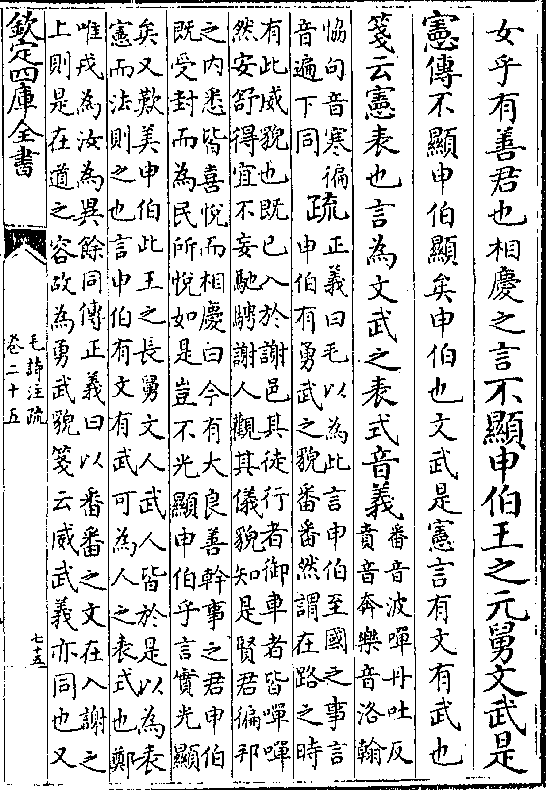 女乎有善君也相慶之言不顯申伯王之元舅文武是
憲傳不顯申伯顯矣申伯也文武是憲言有文有武也
箋云憲表也言為文武之表式音義番音波嘽丹吐反
賁音奔樂音洛翰
協句音寒徧
音遍下同疏正義曰毛以為此言申伯至國之事言
申伯有勇武之貌番番然謂在路之時
有此威貌也既已入於謝邑其徒行者御車者皆嘽嘽
然安舒得宜不妄馳騁謝人觀其儀貌知是賢君徧邦
之内悉皆喜悅而相慶曰今有大良善幹事之君申伯
既受封而為民所悅如是豈不光顯申伯乎言實光顯
矣又歎美申伯此王之長舅文人武人皆於是以為表
憲而法則之也言申伯有文有武可為人之表式也鄭
唯戎為汝為異餘同傳正義曰以番番之文在入謝之
上則是在道之容故為勇武貌箋云威武義亦同也又
欽定四庫全書
毛詩注疏
卷二十五
七十五